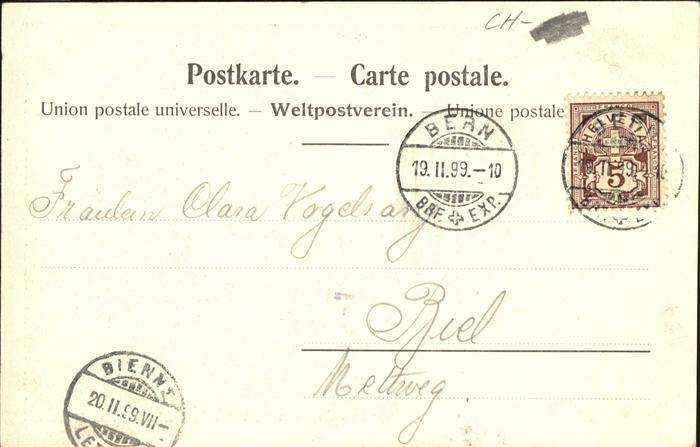 CH-
Postkarte. — Carte postale.
Union postale universelle. — Weltpostverein. — Unione postale
BERN
19.II.99.-10
BRF. EXP.
HELVETIA
5
Fräulein Clara Vogelsang
Biel
Mettweg
BIENNE
20.II.99.VII-